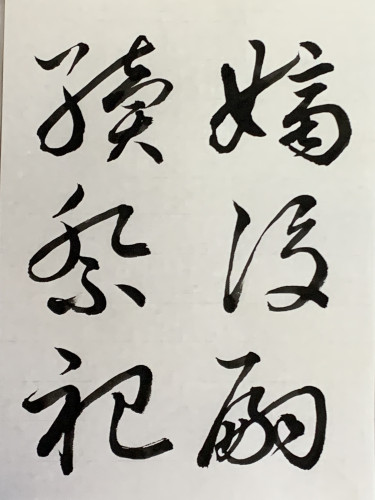 嫡後嗣
續祭祀